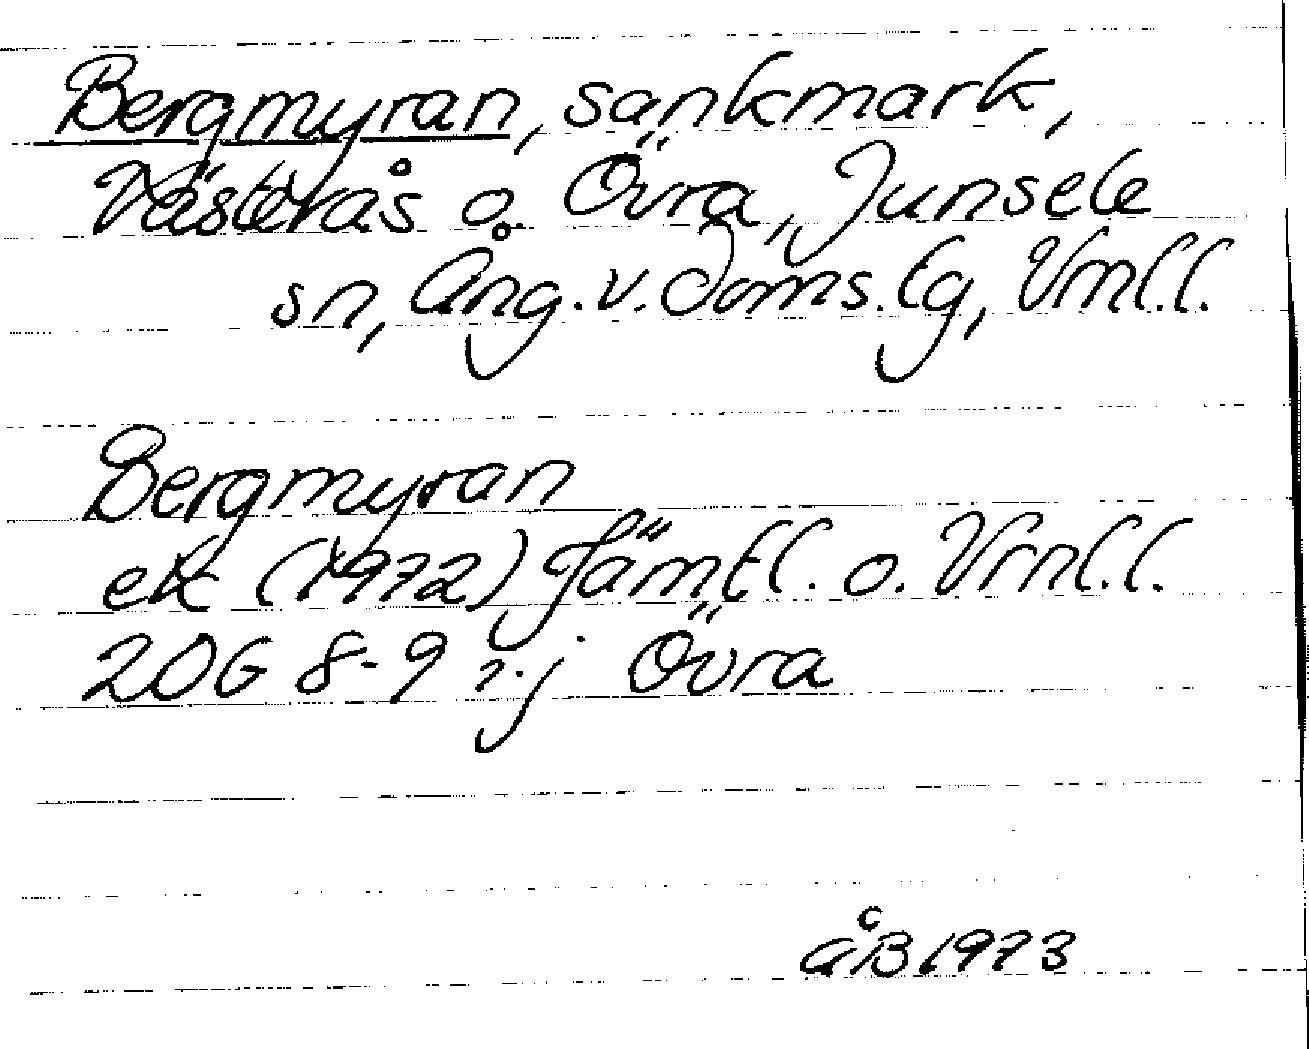 Bergmyran, sankmark,
Västerås o. Övra, Junsele
sn, Ång. v. doms. tg, Vrnl.l.
Bergmyran
ek (1972) Jämtl. o. Vrnl.l.
20G 8-9 i-j Övra
ÅB 1973